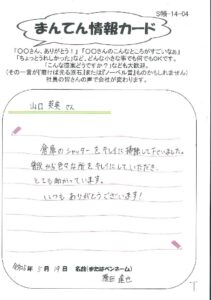 S帳-14-04
まんてん情報カード
「○○さん、ありがとう！」「○○さんのこんなところがすごいなぁ」
「ちょっとうれしかった」など、どんな小さな事でも何でもOKです。
「こんな提案どうですか？」なども大歓迎。
(その一言が「磨けば光る原石」または「ノーベル賞」ものかもしれません)
社員の皆さんの声で会社が変わります。
山口 さん
倉庫のシャッターをキレイに掃除して下さいました。
普段から色々な所をキレイにしていただき、
とても助かっています。
いつもありがとうございます！
5月19日 名前(またはペンネーム)